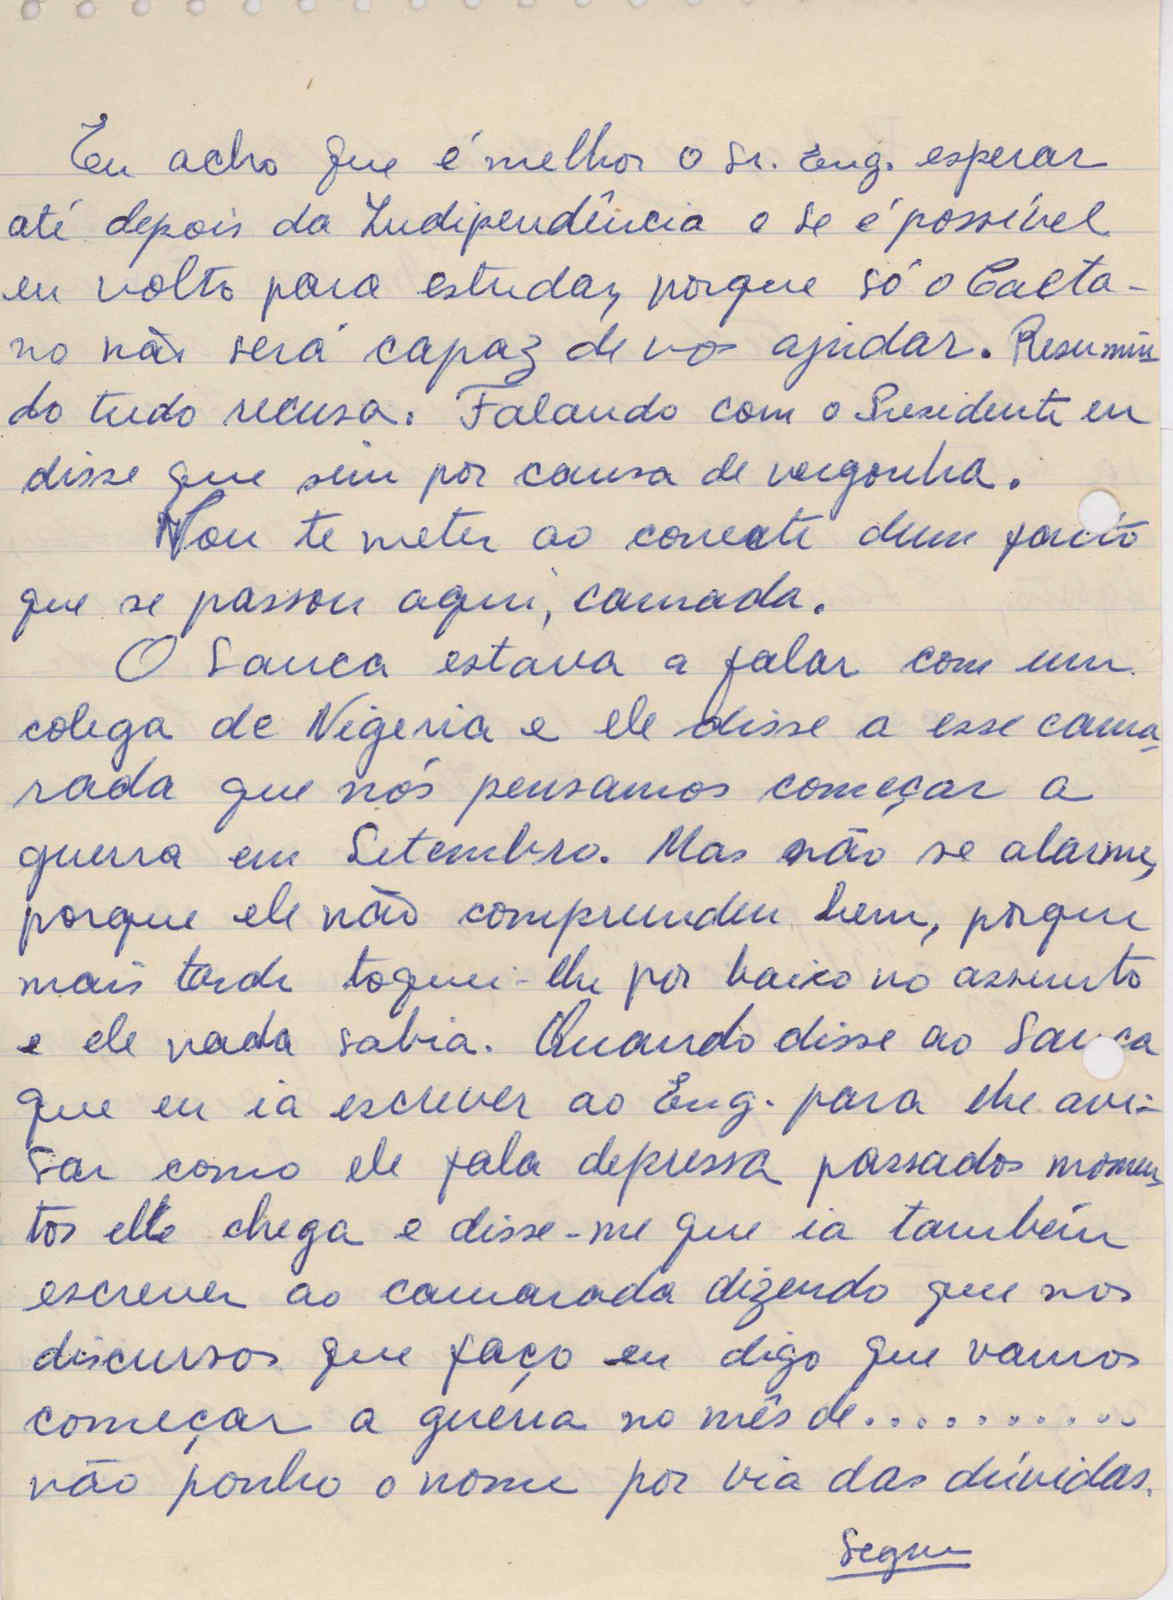 Eu acho que é melhor o Sr. Eng. esperar
até depois da Indipendência e se é possível
eu volto para estudar, porque só o Caeta-
no não será capaz de vos ajudar. Resumin-
do tudo recusa. Falando com o Presidente eu
disse que sim por causa de vergonha.
Vou te meter ao corrente dum facto
que se passou aqui, camada.
O Sanca estava a falar com um
colega de Nigeria e ele disse a esse cama-
rada que nós pensamos começar a
guerra em Setembro. Mas não se alarme,
porque ele não comprendeu bem, porque
mais tarde toquei-lhe por baixo no assunto
e ele nada sabia. Quando disse ao Sanca
que eu ia escrever ao Eng. para lhe avi-
sar como ele fala depressa passados momen-
tos ele chega e disse-me que ia também
escrever ao camarada dizendo que nos
discursos que faço eu digo que vamos
começar a guérra no mês de..........
não ponho o nome por via das dúvidas.
Segue